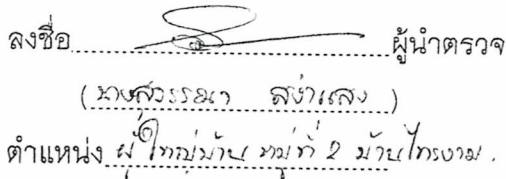 ลงชื่อ ผู้นำตรวจ
(นายสุวรรณา สง่าแสง)
ตำแหน่ง ผู้ใหญ่บ้าน หมู่ที่ 2 บ้านไทรงาม.